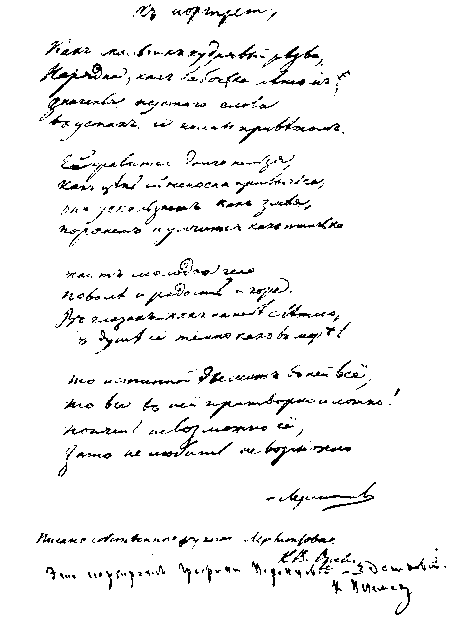 Къ портрету,
Какъ мальчикъ кудрявый рѣзва,
Нарядна, какъ бабочка лѣтомъ;
Значенья пустаго слова
Въ устахъ ея полны привѣтомъ.
Ей нравиться долго нельзя,
Какъ цѣпь ей несносна привычка,
Она ускользнетъ какъ змѣя,
Порхнетъ и умчится какъ птичка
Таитъ молодое чело
По волѣ и радость и горе.
Въ глазахъ какъ на небѣ свѣтло,
Въ душѣ ея темно какъ въ морѣ!
То истиной дышитъ въ ней всё,
То все въ ней притворно и ложно!
Понять невозможно её,
Зато не любить невозможно
Лермонтовъ
Писано собственною рукою Лермонтова.
К. В.
Это Графини